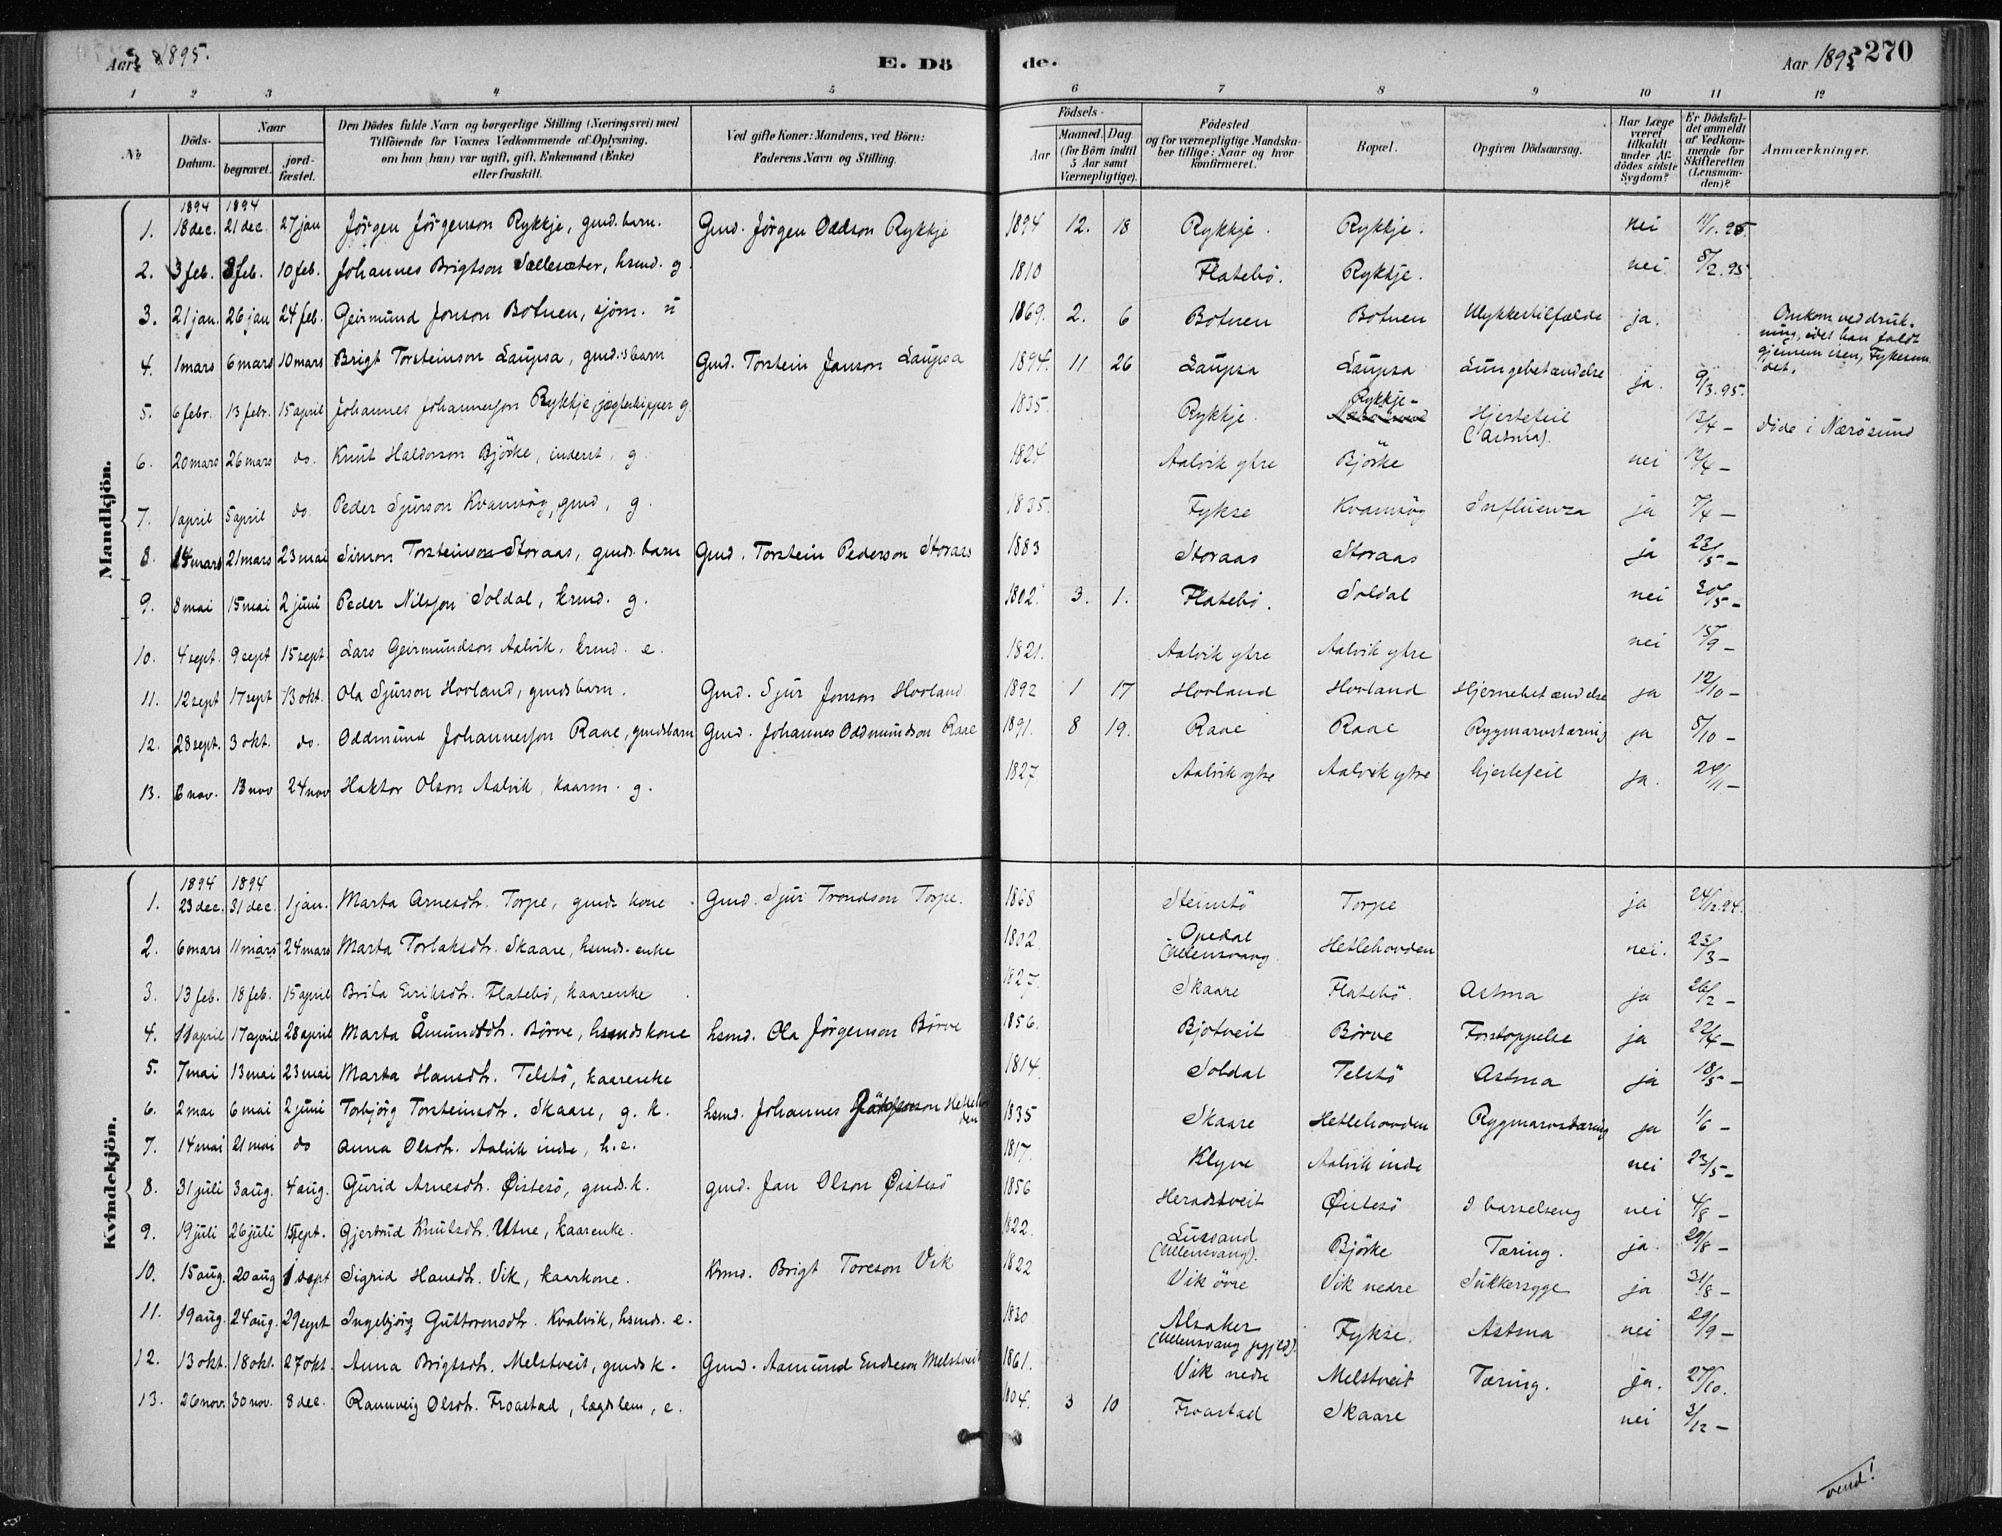 Aar 1895.
E. Döde.
Aar 1895
270
1 2 3 4 5 6 7 8 9 10 11 12
No
Döds-Datum.
Naar
begravet.
jordfæstet.
Den Dödes fulde Navn og borgerlige Stilling (Næringsvei) med Tilföiende for Voxnes Vedkommende af Oplysning, om han (hun) var ugift, gift, Enkemand (Enke) eller fraskilt.
Ved gifte Koner: Mandens, ved Börn: Faderens Navn og Stilling.
Födsels-
Aar
Maaned. Dag
(for Börn indtil 5 Aar samt Værnepligtige).
Födested og for værnepligtige Mandskaber tillige: Naar og hvor konfirmeret.
Bopæl.
Opgiven Dödsaarsag.
Har Læge været tilkaldt under Afdödes sidste Sygdom?
Er Dödsfaldet anmeldt af Vedkommende for Skifteretten (Lensmanden)?
Anmærkninger.
Mandkjön.
1. 1894 18 dec. 1894 21 dec. 27 jan Jörgen Jörgenson Rykkje, gmd. barn. Gmd. Jörgen Oddson Rykkje 1894 12. 18 Rykkje. Rykkje. nei 11/1. 95.
2. 3 feb. 8 feb. 10 feb. Johannes Brigtson Sællesæter, hsmd. g. 1810 Flatebö. Rykkje. nei 8/2. 95
3. 21 jan. 26 jan 24 feb. Geirmund Jonson Botnen, sjöm. u 1869. 2. 6 Botnen Botnen Ulykkestilfælde ja. Omkom ved drukning, idet han faldt gjennem isen, Fykesundet.
4. 1 mars 6 mars 10 mars Brigt Torsteinson Laupsa, gmd.s barn Gmd. Torstein Janson Laupsa 1894. 11 26 Laupsa Laupsa Lungebetændelse ja. 9/3. 95.
5. 6 febr. 13 febr. 15 april Johannes Johannesson Rykkje, jægteskipper g. 1835. Rykkje. Rykkje- Hjertefeil (Astma). 13/4 - döde i Nærösund
6. 20 mars 26 mars do. Knut Haldorson Björke, inderst, g. 1824 Aalvik ytre Björke nei 12/4 -
7. 1 april 5 april do. Peder Sjurson Kvamsög, gmd, g. 1835. Fykse Kvamsög Influenza ja 7/4 -
8. 14 mars 21 mars 23 mai Simon Torsteinson Storaas, gmds. barn Gmd. Torstein Pederson Storaas 1883 Storaas Storaas ja 23/5 -
9. 8 mai 15 mai 2 juni Peder Nilsson Soldal, krmd. g. 1802. 3. 1. Flatebö. Soldal nei 30/5 -
10. 4 sept. 9 sept 15 sept. Lars Geirmundson Aalvik, krmd. e. 1821. Aalvik ytre Aalvik ytre nei 15/9 -
11. 12 sept 17 sept 13 okt. Ola Sjurson Hovland, gmds barn. Gmd. Sjur Jonson Hovland 1892 1 17 Hovland Hovland Hjernebetændelse ja 12/10 -
12. 28 sept. 3 okt. do. Oddmund Johannesson Raae, gmdsbarn Gmd. Johannes Oddmundson Raae 1891. 8 19. Raae Raae Rygmarvstæring ja 8/10 -
13. 6 nov. 13 nov 24 nov Haktor Olson Aalvik, kaarm. g. 1827 Aalvik ytre Aalvik ytre hjertefeil ja. 24/11 -
Kvindekjön.
1. 1894 23 dec. 1894 31 dec. 1 jan. Marta Arnesdtr. Torpe, gmds kone. Gmd. Sjur Trondson Torpe. 1868 Steinstö Torpe ja 24/12 94.
2. 6 mars 11 mars 24 mars Marta Torlaksdtr. Skaare, hsmds. enke 1802. Opedal (Ullensvang. Hetlehovden nei. 23/3 -
3. 13 feb. 18 feb. 15 april Brita Eriksdtr. Flatebö, kaarenke. 1827. Skaare Flatebö. Astma ja 26/2 -
4. 11 april 17 april 28 april Marta Åmundsdtr. Börve, hsmds kone hsmd. Ola Jörgenson Börve 1856. Bjotveit Börve Forstoppelse ja 22/4 -
5. 7 mai 13 mai 23 mai Marta Hansdtr. Telstö, kaarenke 1814. Soldal Telstö Astma ja 18/5 -
6. 2 mai 6 mai 2 juni Torbjörg Torsteinsdtr. Skaare, g. k. hsmd. Johannes Hetlehovden 1835 Skaare Hetlehovden Rygmarvstæring ja 1/6 -
7. 14 mai 21 mai do Anna Olsdtr. Aalvik inde, h. e. 1817. Klyve Aalvik inde nei 23/5 -
8. 31 juli 3 aug. 4 aug. Gurid Arnesdtr. Öistesö, gmds. k. gmd. Jan Olson Öistesö 1856 Heradstveit Öistesö I barselseng nei 4/8 -
9. 19 juli 26 juli 1 sept. Gjertrud Knutsdtr. Utne, kaarenke. 1822. Lussand (Ullensvang). Björke Tæring. ja. 29/8 -
10. 15 aug. 20 aug 1 sept Sigrid Hansdtr. Vik, kaarkone. Krmd. Brigt Toreson Vik 1822 Vik övre Vik nedre Sukkersyge ja 31/8 -
11. 19 aug. 24 aug. 29 sept Ingebjörg Guttormsdtr. Kvalvik, hsmds. e. 1830 Alsaker (Ullensvang prgjeld). Fykse. Astma nei 29/9 -
12. 13 okt. 18 okt. 27 okt. Anna Brigtsdtr. Melstveit, gmds k. Gmd. Aamund Endreson Melstveit 1861. Vik nedre Melstveit Tæring. ja. 27/10.
13. 26 nov. 30 nov. 8 dec. Rannveig Olsdtr. Froastad, lægdslem, e. 1804. 3 10 Froastad Skaare nei 3/12 -
vend!